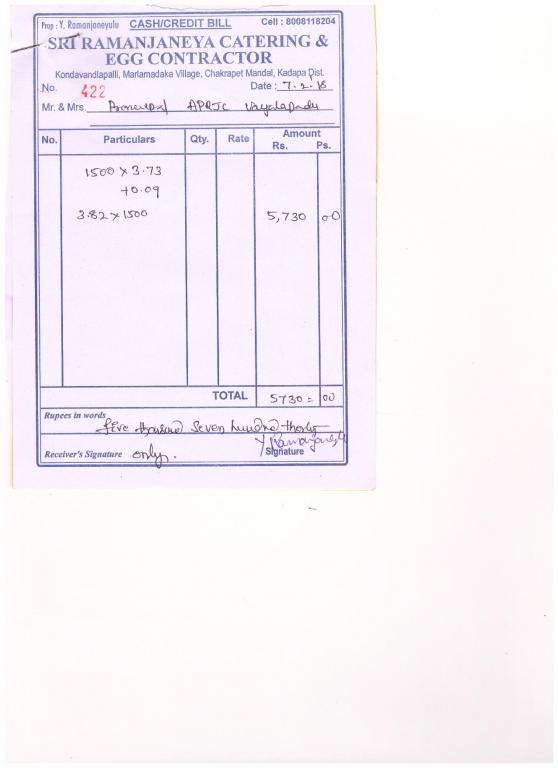 Prop : Y. Ramanjaneyulu CASH/CREDIT BILL Cell : 8008118204
SRI RAMANJANEYA CATERING &
EGG CONTRACTOR
Kondavandlapalli, Marlamadaka Village, Chakrapet Mandal, Kadapa Dist.
No. 422 Date : 7.2.18
Mr. & Mrs. APRJC
No. Particulars Qty. Rate Amount
Rs. Ps.
1500 x 3.73
+0.09
3.82 x 1500 5,730 00
TOTAL 5730 = 00
Rupees in words
five thousand seven hundred thorty
Receiver's Signature only. Signature